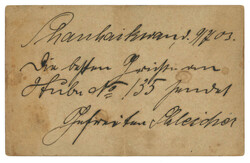 Shanhaikwan, d. 9/7 03.
Die besten Grüße an
Stube No 135 sendet
Gefreiter Schleicher